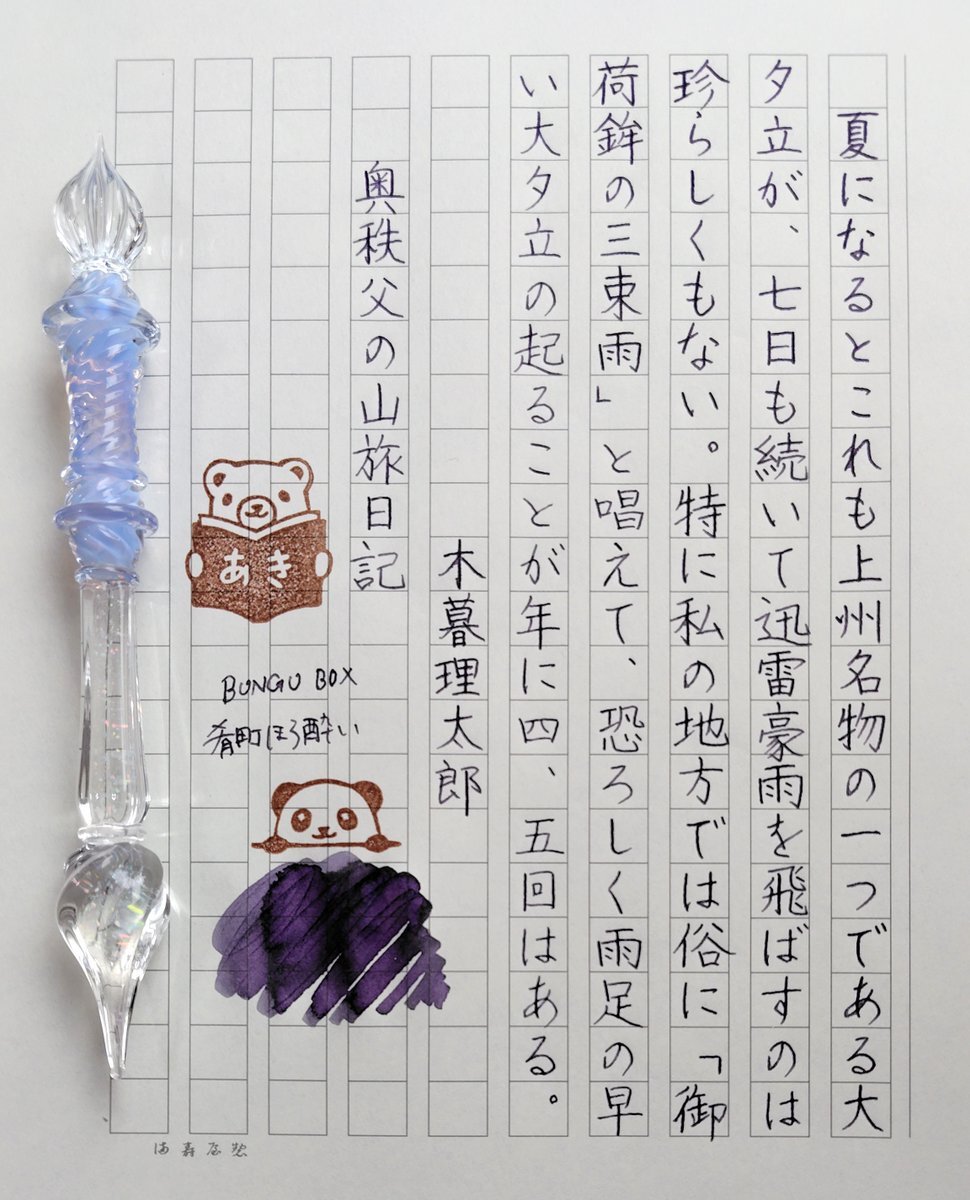 夏になるとこれも上州名物の一つである大
夕立が、七日も続いて迅雷豪雨を飛ばすのは
珍らしくもない。特に私の地方では俗に「御
荷鉾の三束雨」と唱えて、恐ろしく雨足の早
い大夕立の起ることが年に四、五回はある。
木暮理太郎
奥秩父の山旅日記
あき
BUNGU BOX
肴町ほろ酔い